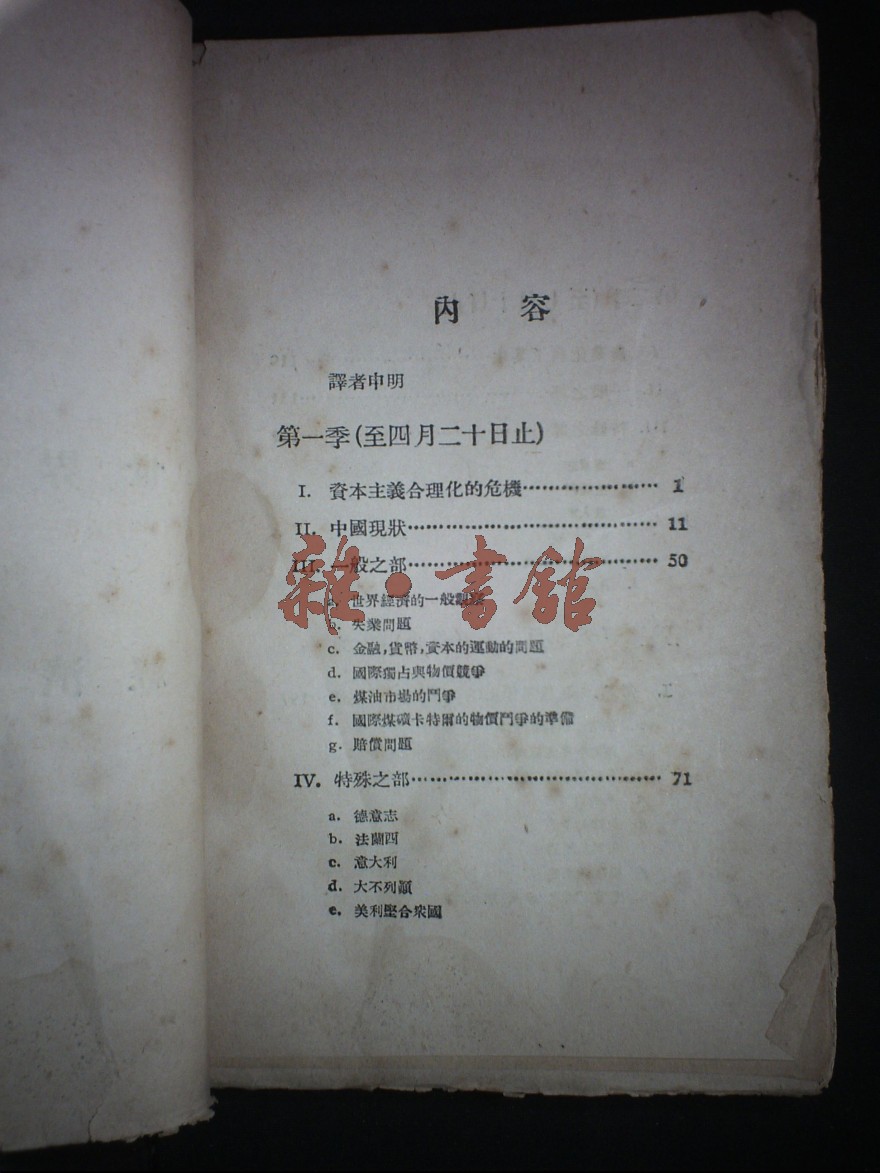 內 容
譯者申明
第一季(至四月二十日止)
I. 資本主義合理化的危機 1
II. 中國現狀 11
III. 一般之部 50
雜·書館
a. 世界經濟的一般觀察
b. 失業問題
c. 金融,貨幣,資本的運動的問題
d. 國際獨占與物價競爭
e. 煤油市場的鬥爭
f. 國際煤礦卡特爾的物價鬥爭的準備
g. 賠償問題
IV. 特殊之部 71
a. 德意志
b. 法蘭西
c. 意大利
d. 大不列顛
e. 美利堅合衆國